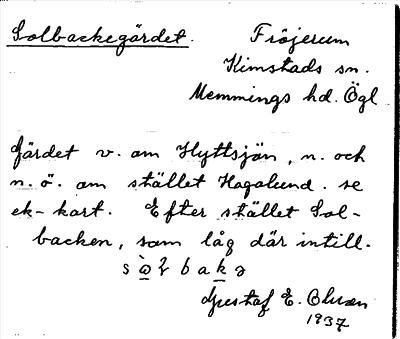 Solbackegärdet. Fröjerum
Kimstads sn.
Memmings hd. Ögl
Gärdet v. om Hyttsjön, n. och
n.ö. om stället Hagalund. se
ek-kart. Efter stället Sol-
backen, som låg där intill.
Gustaf E.
1937